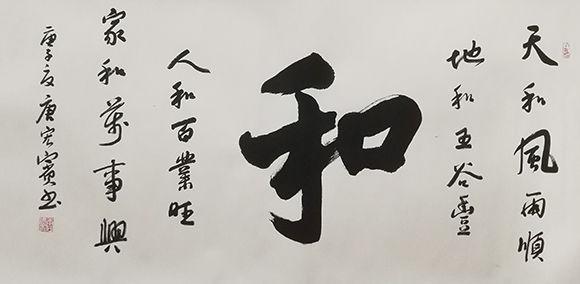 天和風雨順
地和五谷豐
和
人和百業旺
家和萬事興
庚子夏唐宏賓书